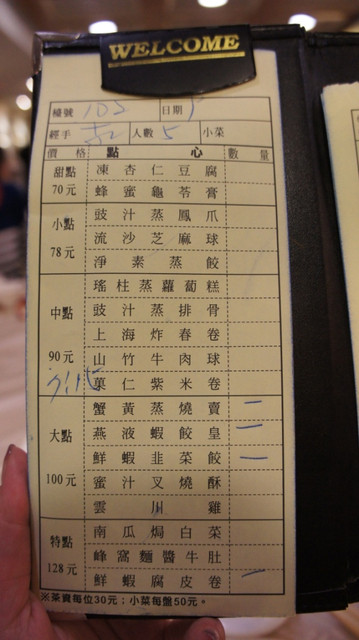 WELCOME
檯號 103 日期
經手 人數 5 小菜
價格 點心 數量
甜點 70元
凍杏仁豆腐
蜂蜜龜苓膏
小點 78元
豉汁蒸鳳爪
流沙芝麻球
淨素蒸餃
中點 90元
瑤柱蒸蘿蔔糕
豉汁蒸排骨
上海炸春卷
山竹牛肉球
菓仁紫米卷
大點 100元
蟹黃蒸燒賣 二
燕液蝦餃皇 二
鮮蝦韭菜餃 一
蜜汁叉燒酥
雲川雞
特點 128元
南瓜焗白菜
蜂窩麵醬牛肚
鮮蝦腐皮卷 一
※茶資每位30元；小菜每盤50元。